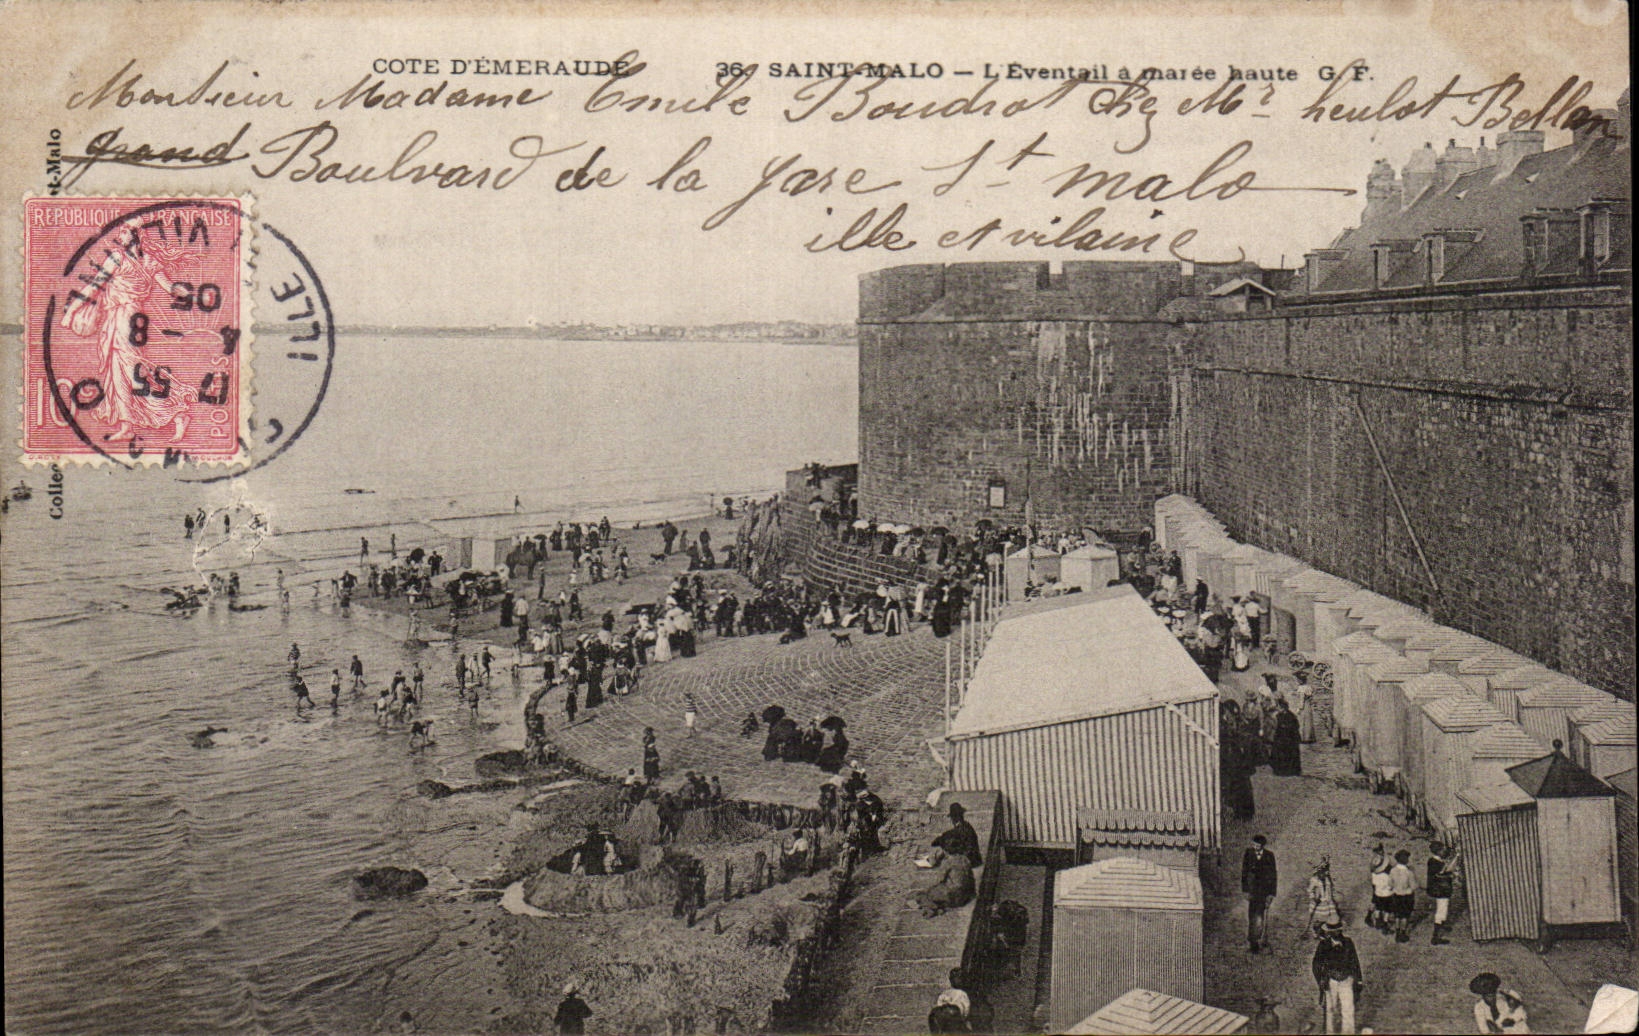 COTE D'ÉMERAUDE 36. SAINT-MALO — L'Éventail à marée haute G. F.
Monsieur Madame Emile Boudrot Chez Mr heulot Bellan
grand Boulvard de la gare St malo
ille et vilaine
t-Malo
Collec
RÉPUBLIQUE FRANÇAISE
10
POSTES
ILLE VILAINE
17 55
4 - 8
05